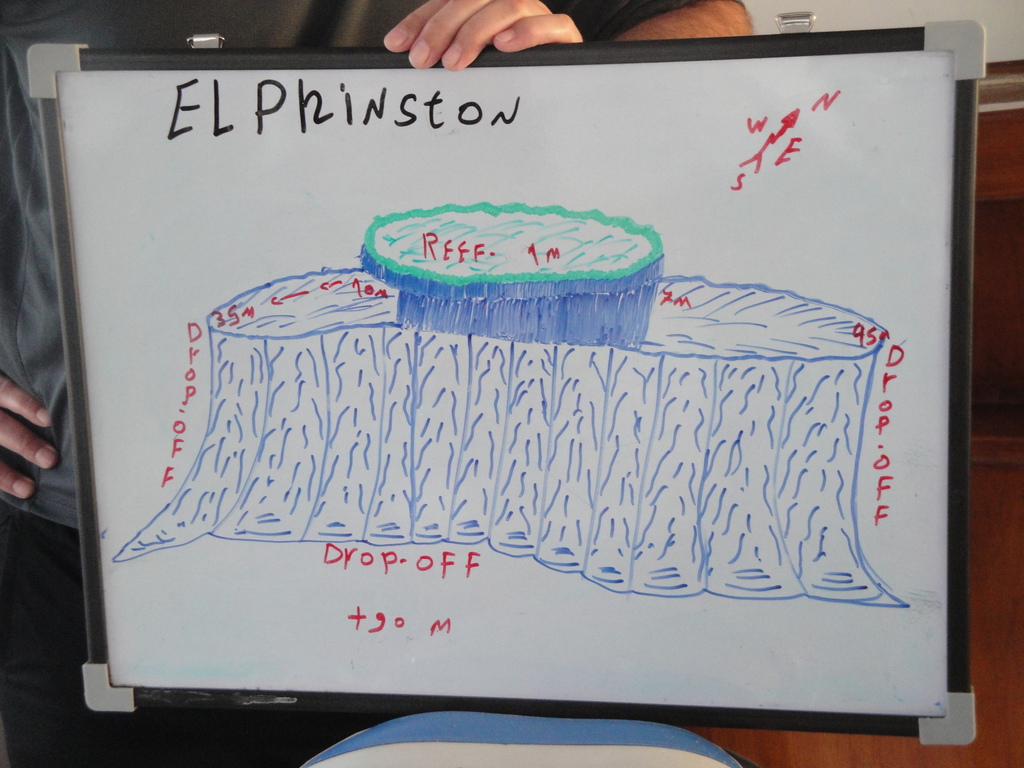 ELPhINSTON
N
W
E
S
REEF. 1M
10M
7M
35M
45M
Drop.OFF
Drop.OFF
Drop.OFF
+90 M